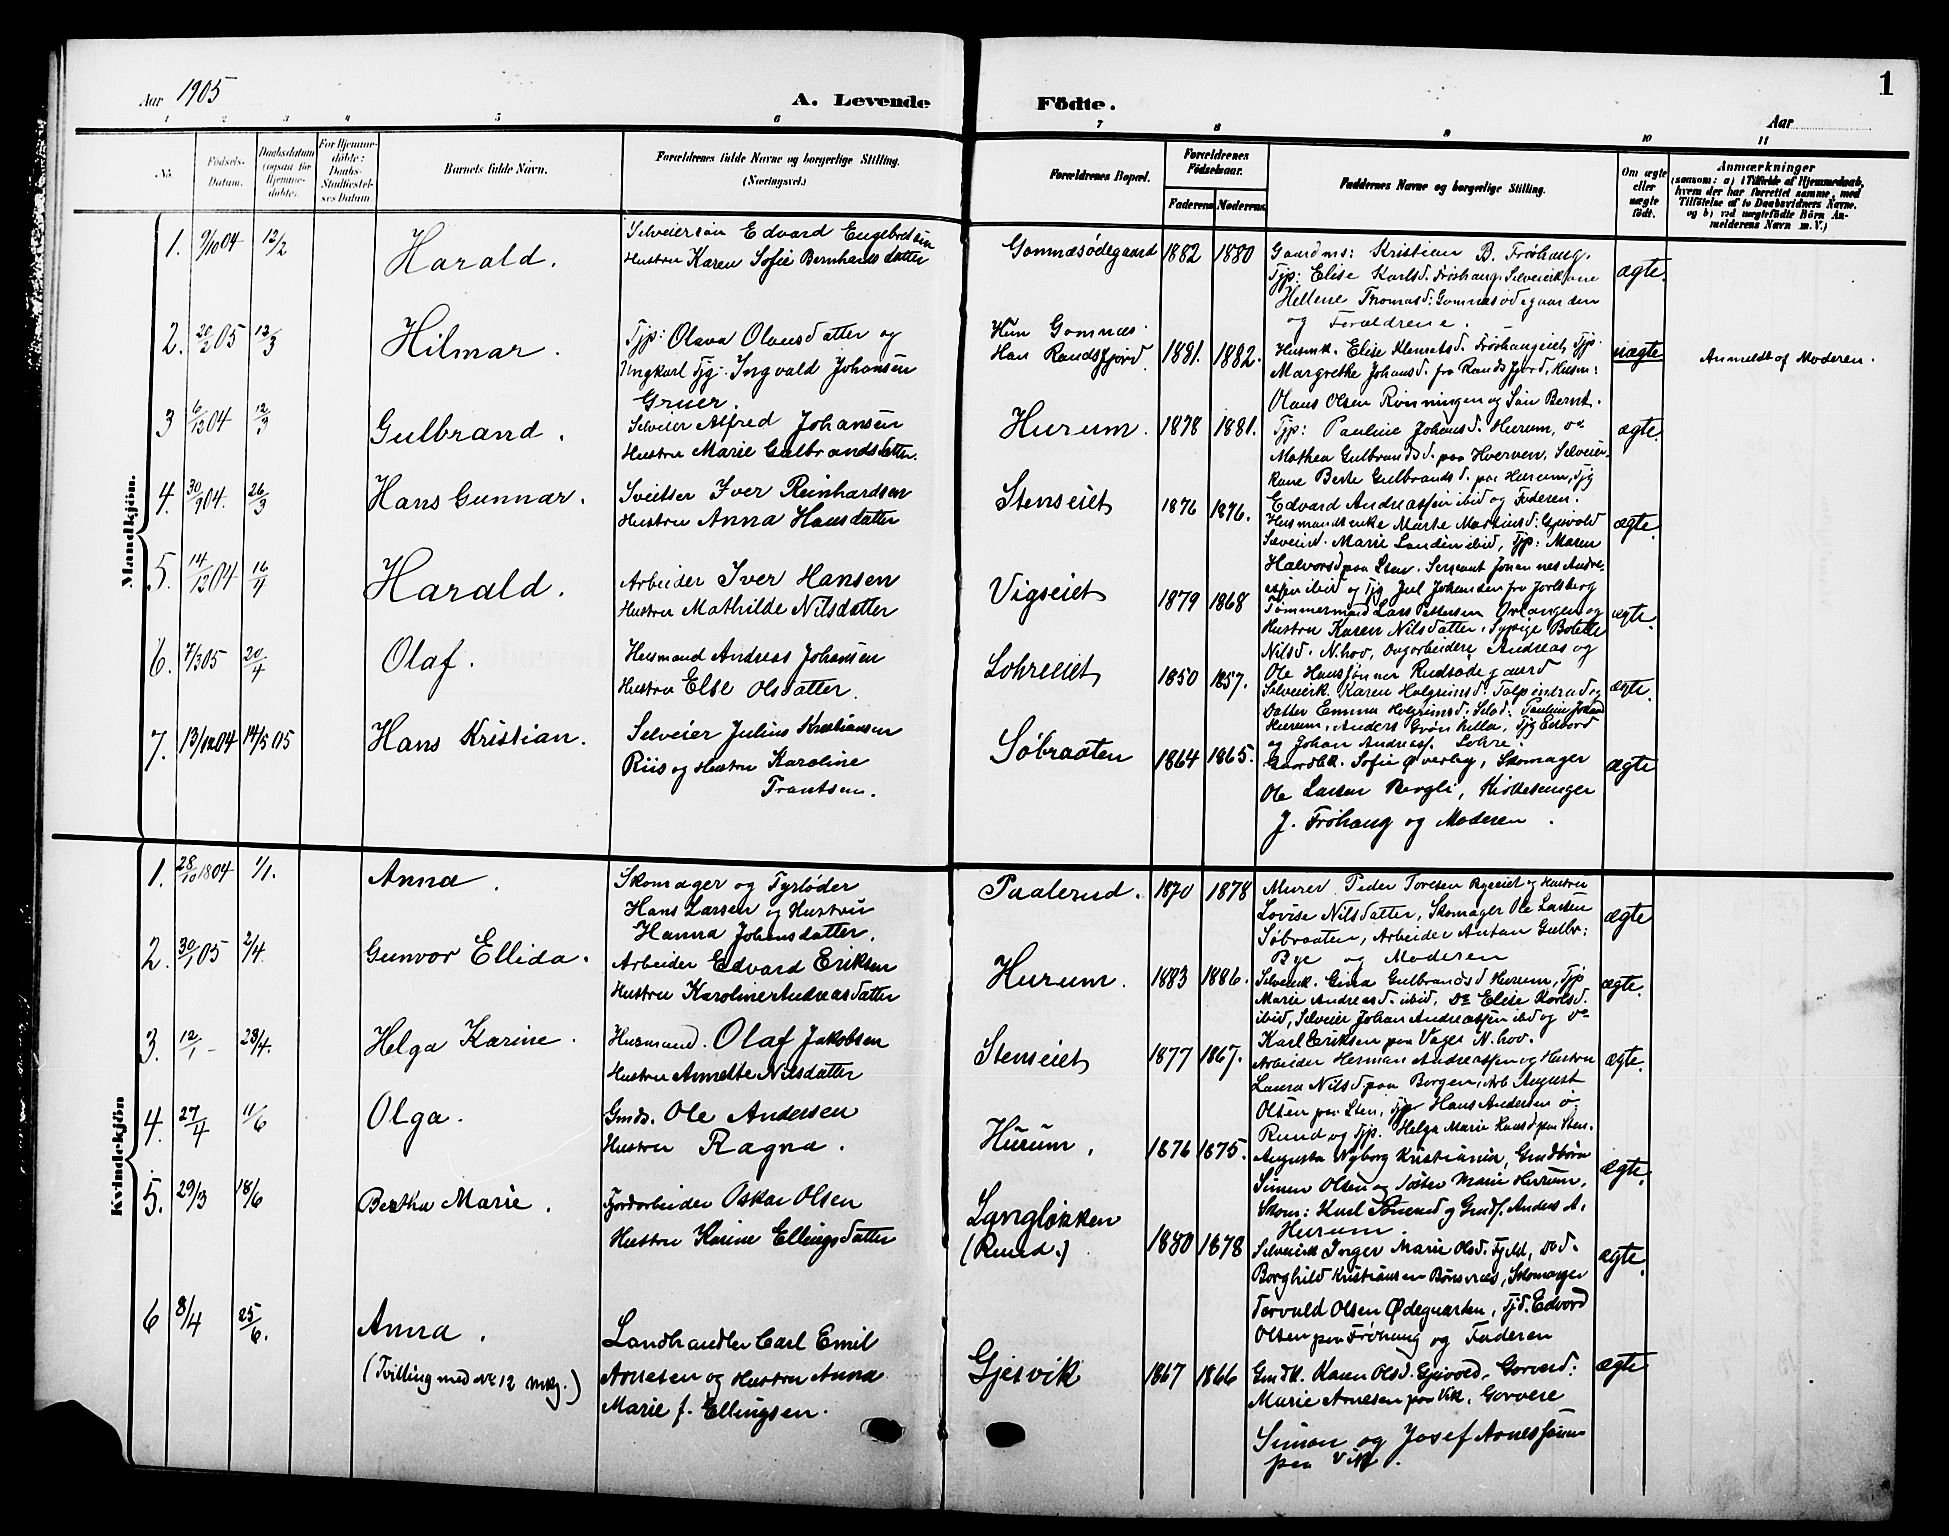 Aar 1905
A. Levende Födte.
Aar
1
1 2 3 4 5 6 7 8 9 10 11
No.
Födsels-
Datum.
Daabsdatum
(ogsaa for
Hjemme-
döbte).
For Hjemme-
döbte:
Daabs-
Stadfæstel-
ses Datum.
Barnets fulde Navn.
Forældrenes fulde Navne og borgerlige Stilling.
(Næringsvei.)
Forældrenes Bopæl.
Forældrenes
Födselsaar.
Faderens Moderens.
Faddernes Navne og borgerlige Stilling.
Om ægte
eller
uægte
födt.
Anmærkninger
(saasom: a) i Tilfælde af Hjemmedaab,
hvem der har forrettet samme, med
Tilföielse af to Daabsvidners Navne,
og b) ved uægtefödte Börn An-
melderens Navn m. V.)
Mandkjön.
1. 9/10 04 12/2 Harald.
Selveiersön Edvard Engebretsen
Hustru Karen Sofie Bernhardsdatter
Gomnæsødegaard 1882 1880
Gaardms: Kristian B. Frøhaug,
Tjp: Elise Karlsd. Frøhaug, Selveierkone
Hellene Thomasd. Gomnæsødegaarden
og Forældrene.
ægte.
2. 20/2 05 12/3 Hilmar.
Tjp: Olava Olausdatter og
Ungkarl Tjg. Ingvald Johansen
Gruer.
Hun Gomnæs
Han Randsfjord. 1881. 1882.
Husmk. Elise Klemetsd. Frøhaugeiet, Tjp.
Margrethe Johansd. fra Randsfjord, Husm:
Olaus Olsen Rønningen og Søn Bernt.
uægte
Anmeldt af Moderen.
3 6/12 04 12/3 Gulbrand.
Selveier Alfred Johansen
Hustru Marie Gulbrandsdatter.
Hurum. 1878 1881.
Tjp: Pauline Johansd. Hurum, do
Mathea Gulbrandsd. paa Hverven, Selveier
kone Berte Gulbrandsd. paa Hurum, Tjg
Edvard Andreassen ibid og Faderen.
ægte.
4. 30/9 04. 26/3 Hans Gunnar.
Sveitser Iver Reinhardsen
Hustru Anna Hansdatter
Stenseiet 1876 1876.
Husmandsenke Marte Martinsd. Gjesvold
Selveierd. Marie Landén ibid, Tjp: Maren
Halvorsd paa Sten, Sergeant Johannes Andre
assen ibid og Tjg Juel Johansen fra Jarlsberg
ægte.
5. 14/12 04 16/4 Harald.
Arbeider Iver Hansen
Hustru Mathilde Nilsdatter
Vigseiet 1879 1868
Tømmermand Lars Pettersen Ørlangen og
Hustru Karen Nilsdatter, Sypige Bolette
Nilsd. N.hov, Dagarbeidere Andreas og
Ole Hanssønner Rudsødegaard
ægte.
6. 7/3 05 20/4 Olaf.
Husmand Andreas Johansen
Hustru Else Olsdatter.
Lohreeiet 1850 1857.
Selveierk. Karen Helgeimsd. Tolpinrud og
Datter Emma Helgeimsd. Selvd: Pauline Johansd
Hurum, Anders Grønhella, Tjg Edvard
og Johan Andreass. Lohre.
ægte.
7. 13/12 04 14/5 05 Hans Kristian.
Selveier Julius Kristiansen
Riis og Hustru Karoline
Frantsen.
Søbraaten 1864 1865.
Gaardbk. Sofie Øverby, Skomager
Ole Larsen Bergli, Kirkesanger
J. Frøhaug og Moderen.
ægte
Kvindekjön
1. 28/10 1804 1/1. Anna.
Skomager og Fyrbøder
Hans Larsen og Hustru
Hanna Johansdatter.
Paalerud. 1870 1878
Murer Peder Toresen Byeeiet og Hustru
Lovise Nilsdatter, Skomager Ole Larsen
Søbraaten, Arbeider Anton Gulbr:
Bye og Moderen
ægte
2. 30/1 05 2/4. Gunvor Ellida.
Arbeider Edvard Eriksen
Hustru Karoline Andreasdatter
Hurum. 1883 1886.
Selveierk. Gina Gulbrandsd Hurum, Tjp
Marie Andreasd. ibid, Do Elise Karlsd.
ibid, Selveier Johan Andreassen ibid og do
Karl Eriksen paa Vager N.hov.
ægte.
3. 12/1 - 23/4. Helga Karine.
Husmand. Olaf Jakobsen
Hustru Annette Nilsdatter
Stenseiet 1877 1867.
Arbeider Herman Andreassen og Hustru
Laura Nilsd. paa Borgen, Arb August
Olsen paa Sten, Tjgr Hans Andersen ø.
Rund og Tjp. Helga Marie Hansd paa Sten.
ægte.
4. 27/4 11/6 Olga.
Gmds. Ole Andersen
Hustru Ragna.
Hurum, 1876 1875.
Augusta Nyborg Kristiania, Gmdbørn
Simen Olsen og Søster Marie Hurum,
Skom: Karl Sønerud og Gmdf. Anders A.
Hurum.
ægte.
5. 29/3 18/6 Bertha Marie.
Jordarbeider Oskar Olsen
Hustru Karine Ellingsdatter
Langløkken
(Rund.) 1880 1878
Selveierk Inger Marie Olsd. Fjeld, Do d.
Borghild Kristiansen Bønsnæs, Skomager
Torvald Olsen Ødegaarden, Tjd. Edvard
Olsen paa Frøhaug og Faderen
ægte.
6 8/4 25/6. Anna.
(Tvilling med No 12 mkj.)
Landhandler Carl Emil
Arnesen og Hustru Anna
Marie f. Ellingsen.
Gjesvik 1867 1866
Gmdk. Karen Olsd. Gjesvold, Garverd:
Marie Arnesen paa Vik, Garvere
Simon og Josef Arnessønner
paa Vik.
ægte